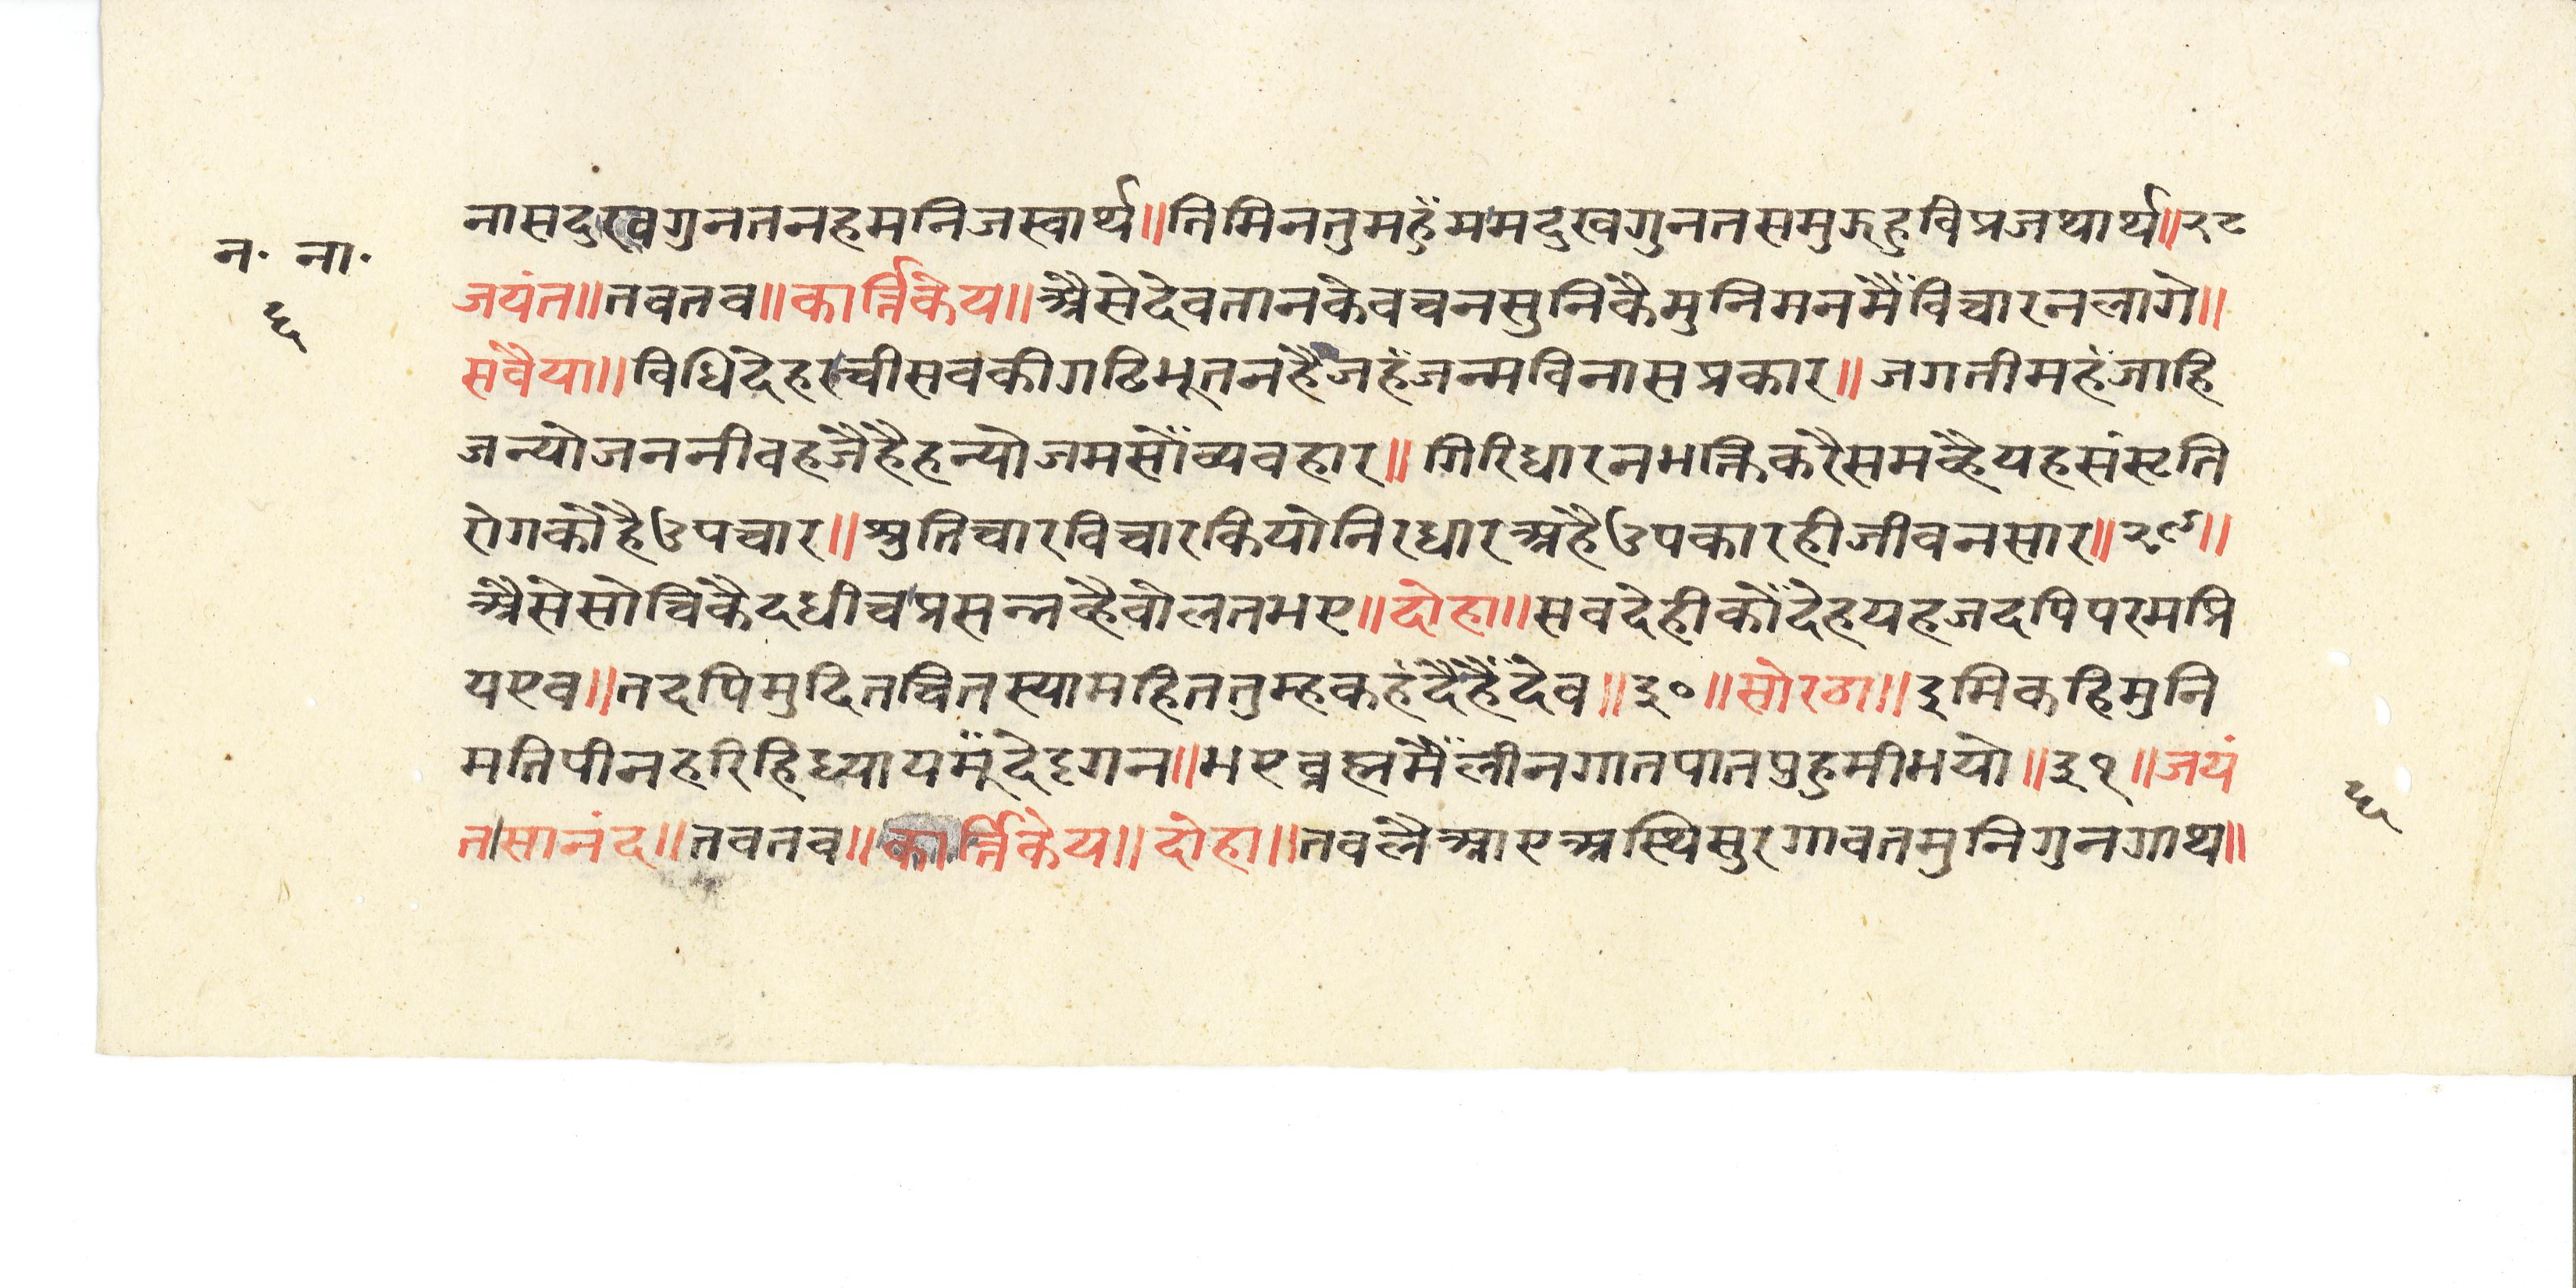 न॰ ना॰
६
नासदुखगुनतनहमनिजस्वार्थ॥तिमिनतुमहुँममदुखगुनतसमुझहुविप्रजथार्थ॥२८
जयंत॥तवतव॥कार्त्तिकेय॥अैसेदेवतानकेवचनसुनिकैमुनिमनमैंविचारनलागे॥
सवैया॥विधिदेहरचीसवकीगठिभूतनहैजहंजन्मविनासप्रकार॥जगतीमहंजाहि
जन्योजननीवहजैहैहन्योजमसौंव्यवहार॥गिरिधारनभक्तिकरैसमव्हैयहसंसृति
रोगकौहैउपचार॥श्रुतिचारविचारकियोनिरधारअहैउपकारहीजीवनसार॥२९॥
अैसेसोचिकैदधीचप्रसन्नव्हैवोलतभए॥दोहा॥सवदेहीकौंदेहयहजदपिपरमप्रि
यएव॥तदपिमुदितचितस्यामहिततुम्हकहंदैहैंदेव॥३०॥सोरठा॥इमिकहिमुनि
मतिपीनहरिहिध्यायमूँदेदृगन॥भएव्रह्ममैंलीनगातपातपुहुमीभयो॥३१॥जयं
त।सानंद॥तवतव॥कार्त्तिकेय॥दोहा॥तवलैआएअस्थिसुरगावतमुनिगुनगाथ॥
६